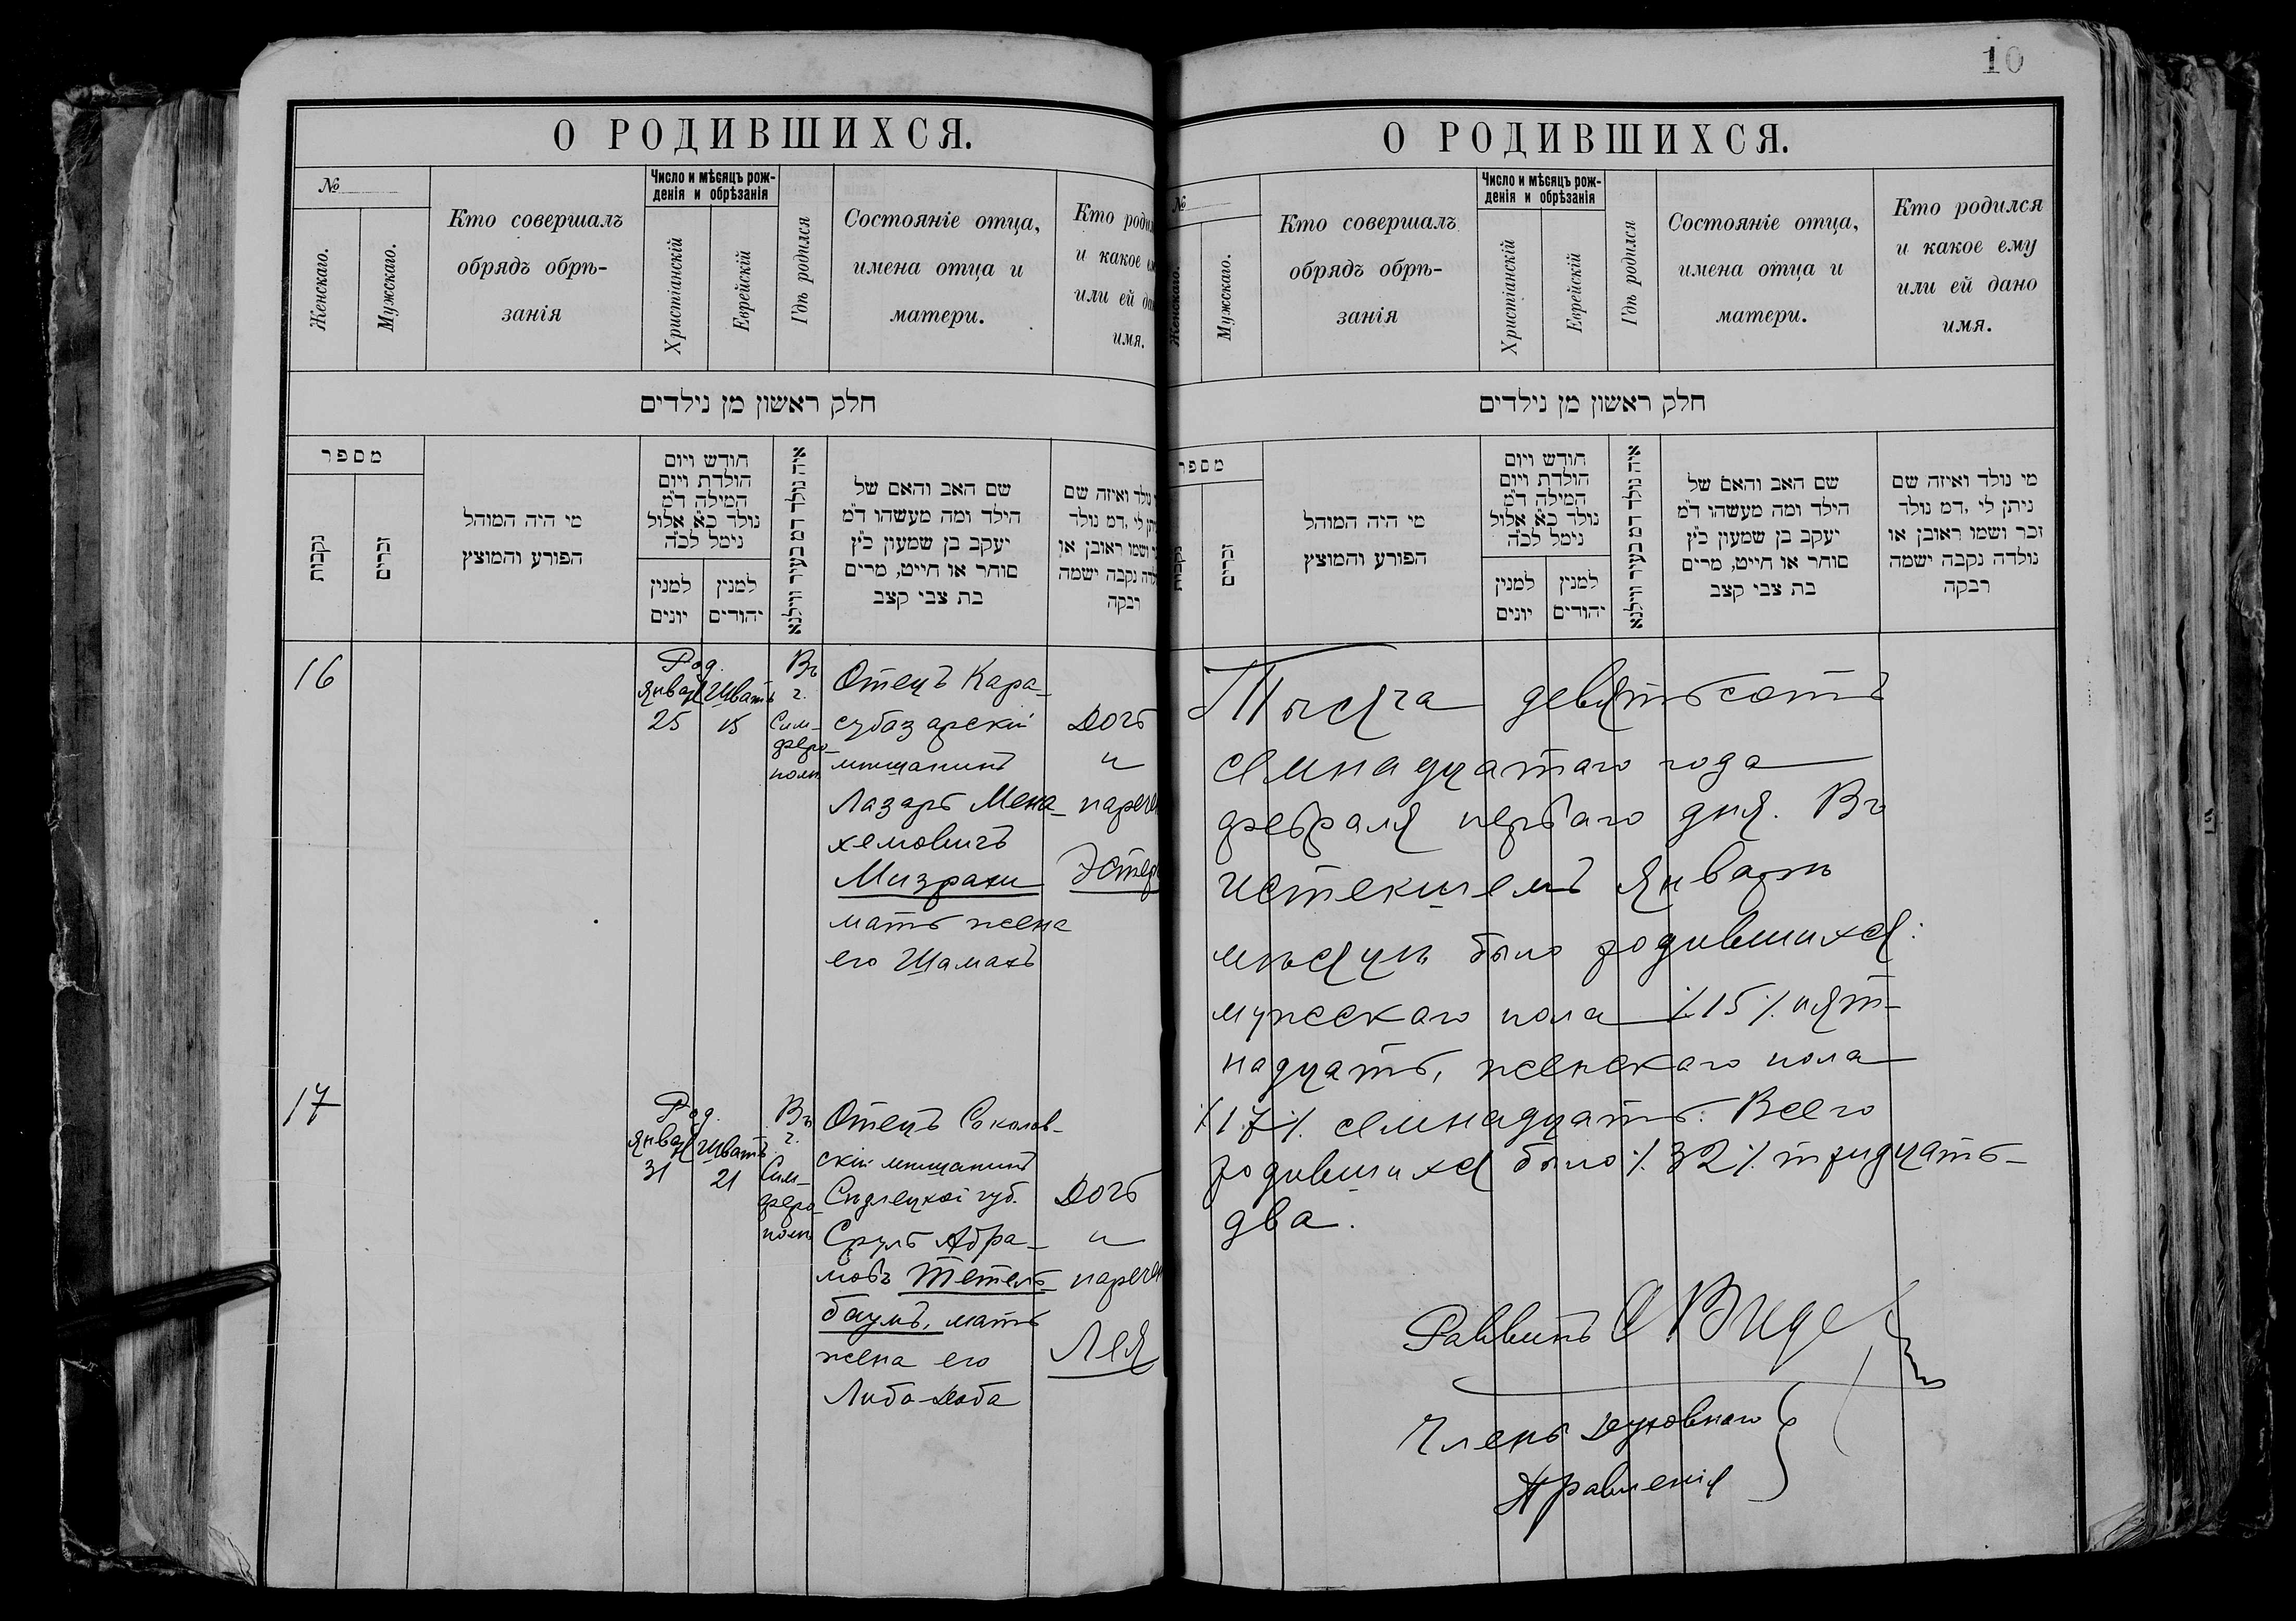 О РОДИВШИХСЯ.
№
Женскаго.
Мужскаго.
Кто совершалъ
обрядъ обрѣ-
занія
Число и мѣсяцъ рож-
денія и обрѣзанія
Христіанскій
Еврейскій
Годъ родился
Состояніе отца,
имена отца и
матери.
Кто роди
и какое
или ей да
имя.
חלק ראשון מן נילדים
מספר
נקבות
זכרים
מי היה המוהל
הפורע והמוצץ
חודש ויום
הולדת ויום
המילה ד"מ
נולד כ"א אלול
נימל לכ"ה
למנין
יונים
למנין
יהודים
איה נולד דמ בעיר ווילנא
שם האב והאם של
הילד ומה מעשהו ד"מ
יעקב בן שמעון כ"ץ
סוחר או חייט, מרים
בת צבי קצב
נולד ואיזה שם
לי ,דמ נולד
ושמו ראובן או
נקבה ישמה
רבקה
16
Род.
Январ
25
Шватъ
15
Въ
г.
Сим-
феро-
полѣ
Отецъ Кара-
субазарскій
мѣщанинъ
Лазарь Мена-
хемовичъ
Мизрахи
мать жена
его Шамахъ
Дочь
"
наречен
Эстер
17
Род.
Январ
31
Шватъ
21
Въ
г.
Сим-
феро-
полѣ
Отецъ Соколов-
скій мѣщанинъ
Сѣдлецкой губ.
Сруль Абра-
мовъ Тетель-
баумъ, мать
жена его
Либа-Доба
Дочь
"
наречен
Лея
10
О РОДИВШИХСЯ.
№
Женскаго.
Мужскаго.
Кто совершалъ
обрядъ обрѣ-
занія
Число и мѣсяцъ рож-
денія и обрѣзанія
Христіанскій
Еврейскій
Годъ родился
Состояніе отца,
имена отца и
матери.
Кто родился
и какое ему
или ей дано
имя.
חלק ראשון מן נילדים
מספר
נקבות
זכרים
מי היה המוהל
הפורע והמוצץ
חודש ויום
הולדת ויום
המילה ד"מ
נולד כ"א אלול
נימל לכ"ה
למנין
יונים
למנין
יהודים
איה נולד דמ בעיר ווילנא
שם האב והאם של
הילד ומה מעשהו ד"מ
יעקב בן שמעון כ"ץ
סוחר או חייט, מרים
בת צבי קצב
מי נולד ואיזה שם
ניתן לי ,דמ נולד
זכר ושמו ראובן או
נולדה נקבה ישמה
רבקה
Тысяча девятьсотъ
семнадцатаго года
февраля перваго дня. Въ
истекшемъ Январѣ
мѣсяцѣ было родившихся:
мужескаго пола ⁒15⁒ пят-
надцать, женскаго пола
⁒17⁒ семнадцать. Всего
родившихся было ⁒32⁒ тридцать-
два.
Раввинъ
Членъ Духовнаго
Правленія